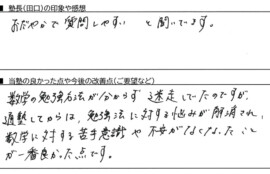 ■ 塾長(田口)の印象や感想
おだやかで質問しやすい と聞いています。
■ 当塾の良かった点や今後の改善点(ご要望など)
数学の勉強方法が分からず 迷走していたのですが、
通塾してからは、勉強法に対する悩みが解消され、
数学に対する苦手意識や不安がなくなったこと
が一番良かった点です。